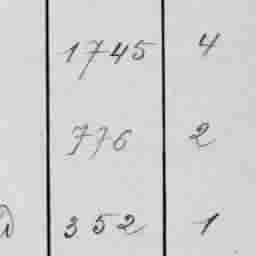 1745 4
776 2
352 1